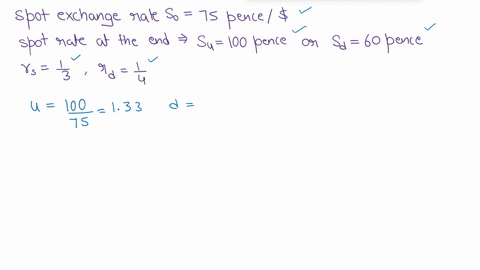 spot exchange rate S₀ = 75 pence/$ ✓
spot rate at the end ⇒ Su = 100 pence ✓ or Sd = 60 pence ✓
rs = 1/3 ✓, rd = 1/4 ✓
u = 100/75 = 1.33 d =